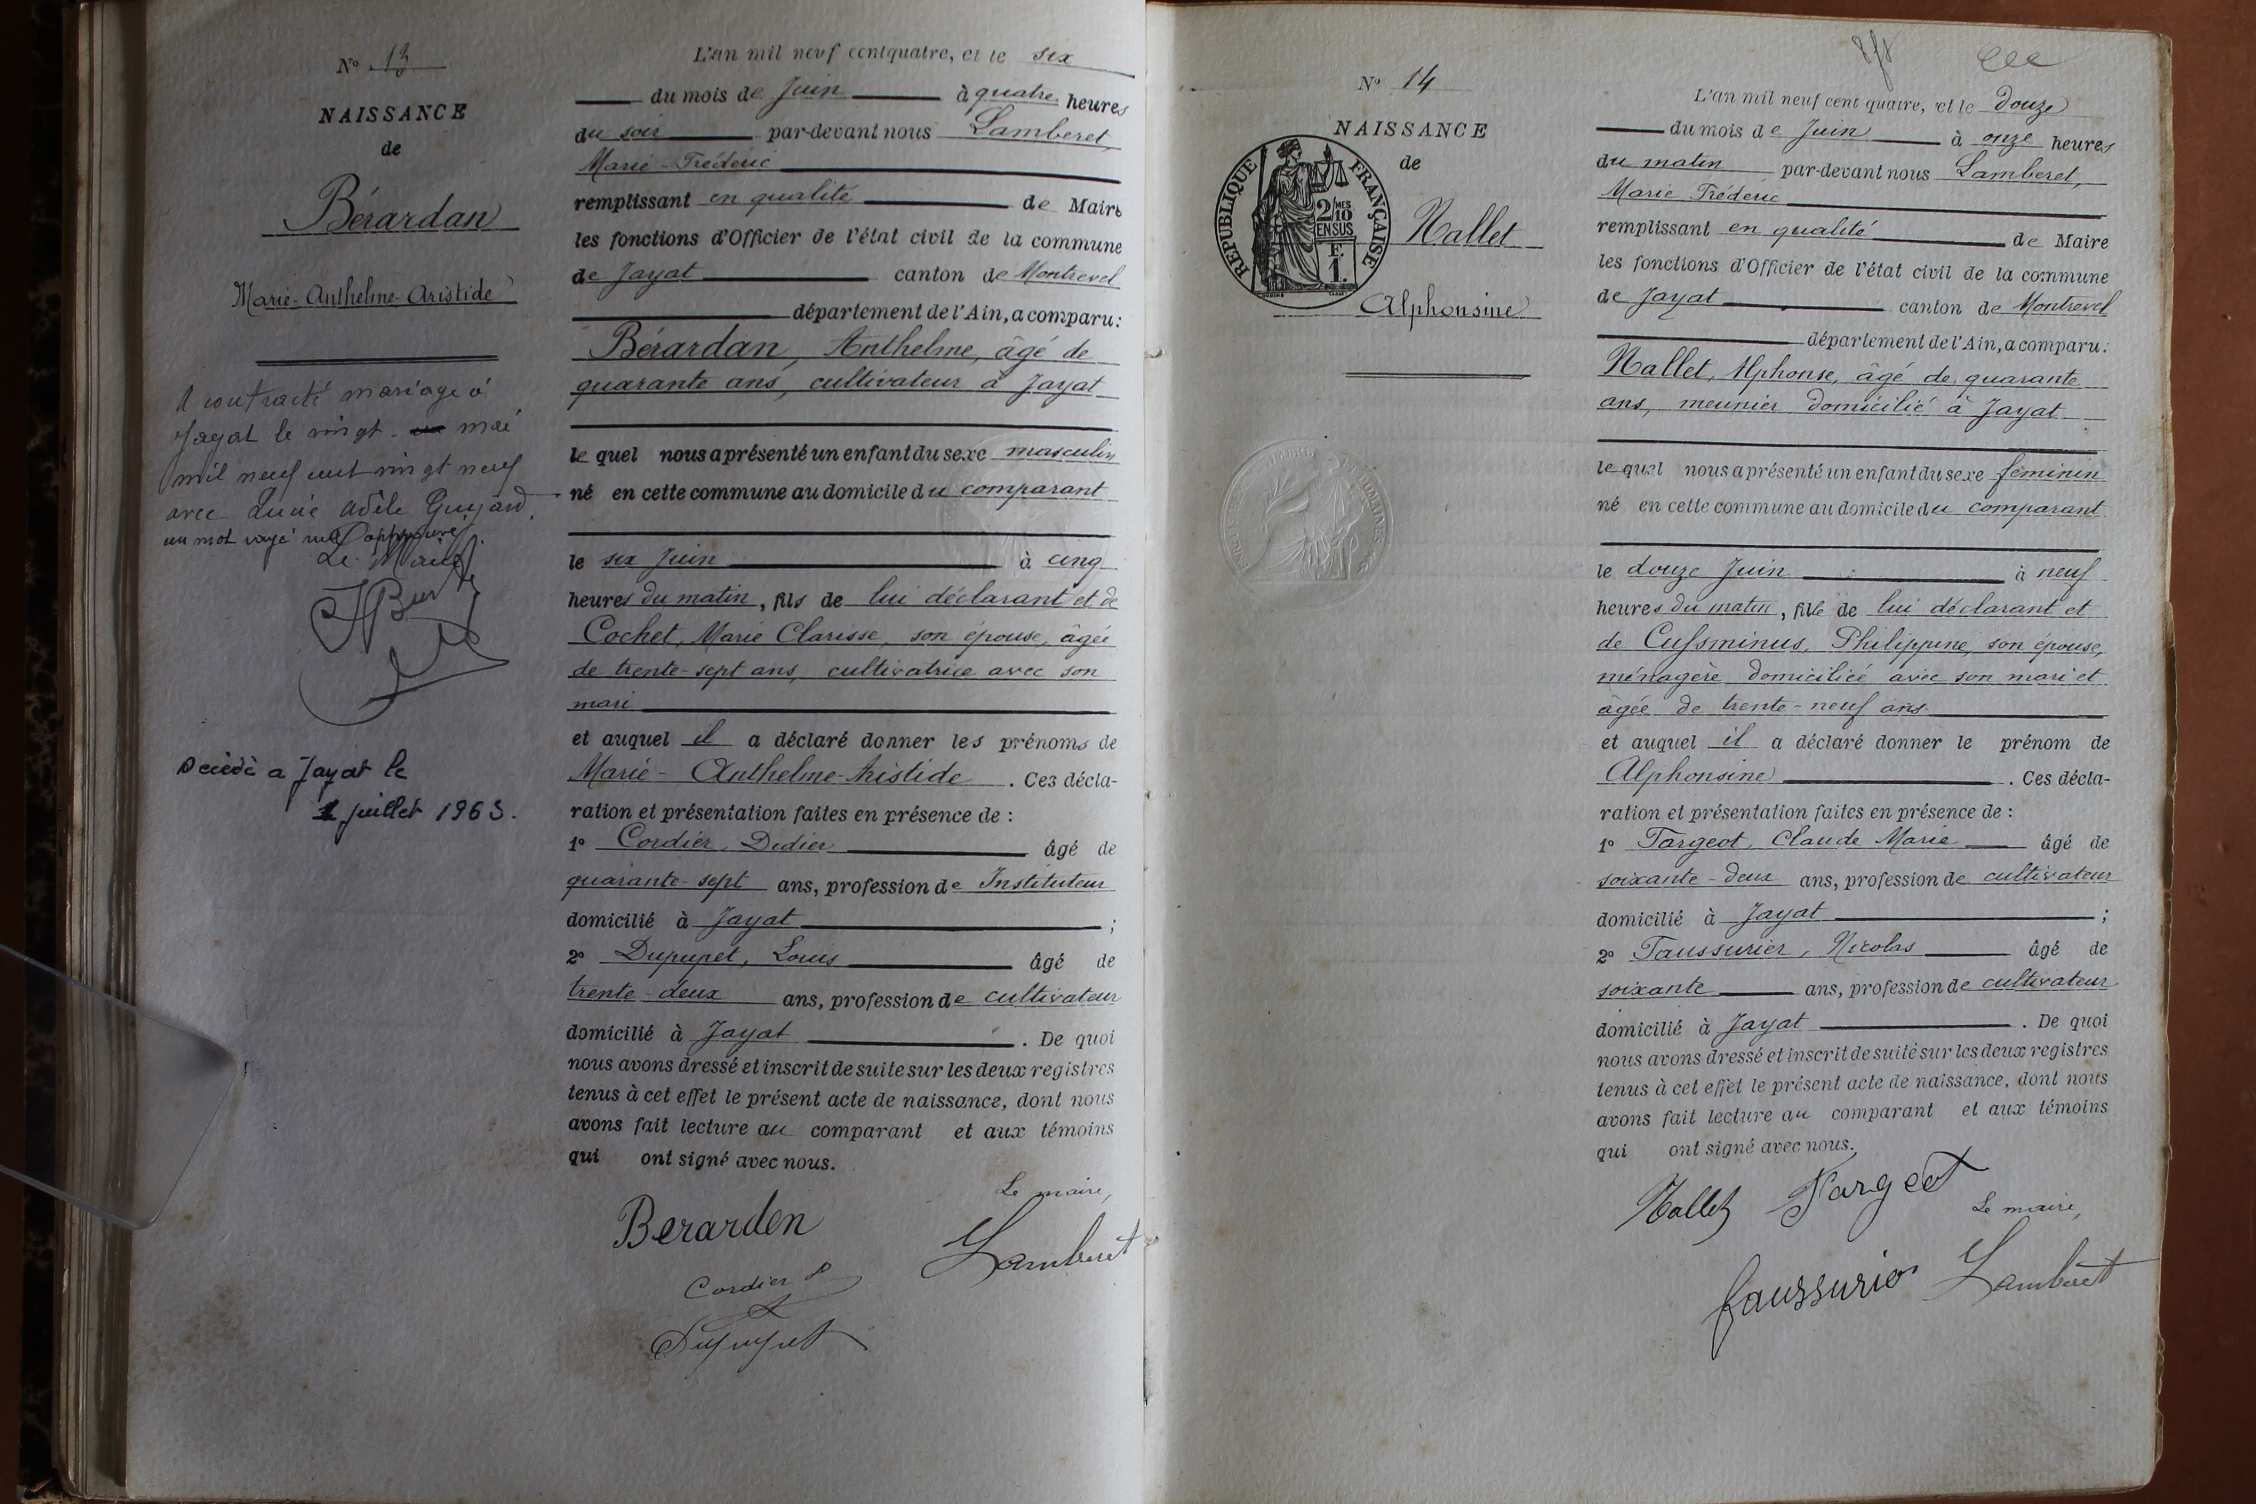 N° 13
NAISSANCE
de
Bérardan
Marie-Anthelme-Aristide
A contracté mariage à
Jayat le vingt mai
mil neuf cent vingt neuf
avec Lucie Adèle Guyard.
un mot rayé nul approuvé.
Le Maire
Décédé a Jayat le
1 juillet 1963.
L'an mil neuf cent quatre, et le six
du mois de Juin à quatre heures
du soir par-devant nous Lamberet,
Marie-Fréderic
remplissant en qualité de Maire
les fonctions d'Officier de l'état civil de la commune
de Jayat canton de Montrevel
département de l'Ain, a comparu:
Bérardan, Anthelme, âgé de
quarante ans, cultivateur à Jayat
le quel nous a présenté un enfant du sexe masculin
né en cette commune au domicile du comparant
le six Juin à cinq
heures du matin, fils de lui déclarant et de
Cochet, Marie Clarisse, son épouse, âgée
de trente-sept ans, cultivatrice avec son
mari
et auquel il a déclaré donner les prénoms de
Marie-Anthelme-Aristide. Ces décla-
ration et présentation faites en présence de :
1° Cordier, Didier âgé de
quarante-sept ans, profession de Instituteur
domicilié à Jayat ;
2° Dupupet, Louis âgé de
trente-deux ans, profession de cultivateur
domicilié à Jayat . De quoi
nous avons dressé et inscrit de suite sur les deux registres
tenus à cet effet le présent acte de naissance, dont nous
avons fait lecture au comparant et aux témoins
qui ont signé avec nous.
Le maire,
Berardan
Lamberet
Cordier D
Dupupet
N° 14
NAISSANCE
de
RÉPUBLIQUE FRANÇAISE
2/10 MES
EN SUS
F.
1.
Nallet
Alphonsine
L'an mil neuf cent quatre, et le douze
du mois de Juin à onze heures
du matin par-devant nous Lamberet,
Marie Fréderic
remplissant en qualité de Maire
les fonctions d'Officier de l'état civil de la commune
de Jayat canton de Montrevel
département de l'Ain, a comparu:
Nallet, Alphonse, âgé de quarante
ans, meunier domicilié à Jayat
le quel nous a présenté un enfant du sexe féminin
né en cette commune au domicile du comparant
le douze Juin à neuf
heures du matin, fille de lui déclarant et
de Cussminus, Philippine, son épouse,
ménagère domiciliée avec son mari et
âgée de trente-neuf ans
et auquel il a déclaré donner le prénom de
Alphonsine . Ces décla-
ration et présentation faites en présence de :
1° Fargeot, Claude Marie âgé de
soixante-deux ans, profession de cultivateur
domicilié à Jayat ;
2° Faussurier, Nicolas âgé de
soixante ans, profession de cultivateur
domicilié à Jayat . De quoi
nous avons dressé et inscrit de suite sur les deux registres
tenus à cet effet le présent acte de naissance, dont nous
avons fait lecture au comparant et aux témoins
qui ont signé avec nous.
Nallet Fargeot
Le maire,
faussurier Lamberet